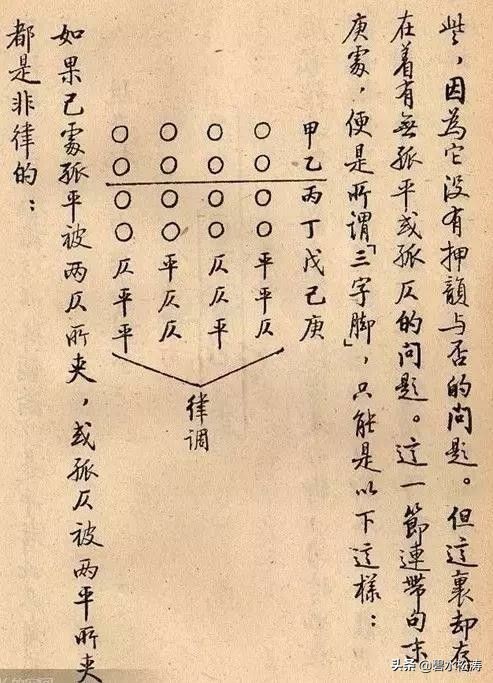 些,因為它没有押韻与否的问题。但这裏却存
在着有無孤平或孤仄的问题。这一節連带句末
庚處,便是所谓「三字脚」,只能是以下这樣:
甲乙丙丁戊己庚
○○○○平平仄
○○○○仄仄平
○○○○平仄仄
○○○○仄平平
律调
如果己處孤平被两仄所夹,或孤仄被两平所夹
都是非律的:
头条@碧水松涛